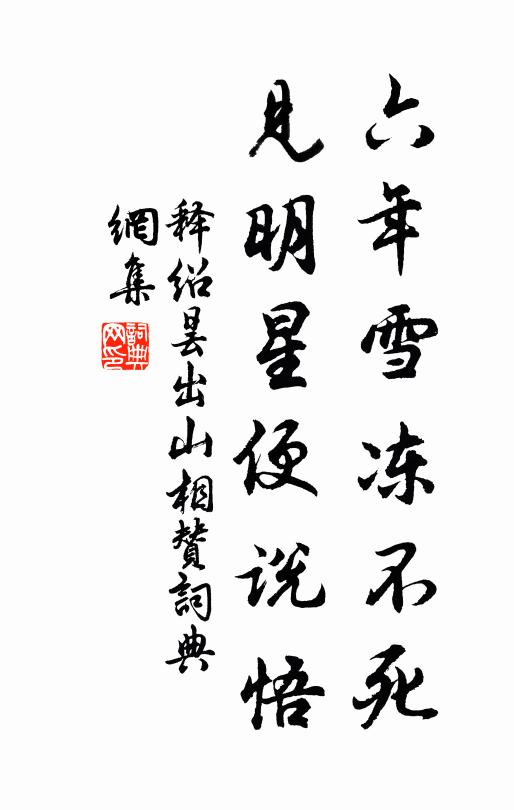 六年雪冻不死
见明星便说悟
释绍昙出山相赞詞典
網集
詞典網印